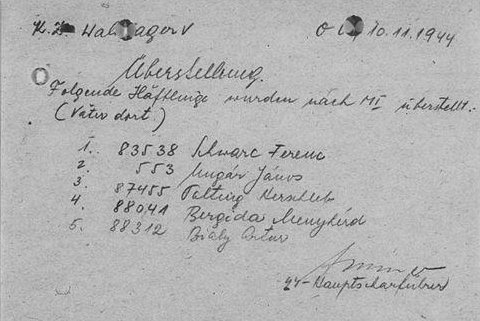 K.Z. Waldlager V O.U., 10.11.1944
Überstellung.
Folgende Häftlinge wurden nach M I überstellt:
(Väter dort)
1. 83538 Schwarc Ferenc
2. 553 Ungár János
3. 87455 Herschleb
4. 88041 Bergida Menyhérd
5. 88312 Bialy Artur
SS-Hauptscharführer